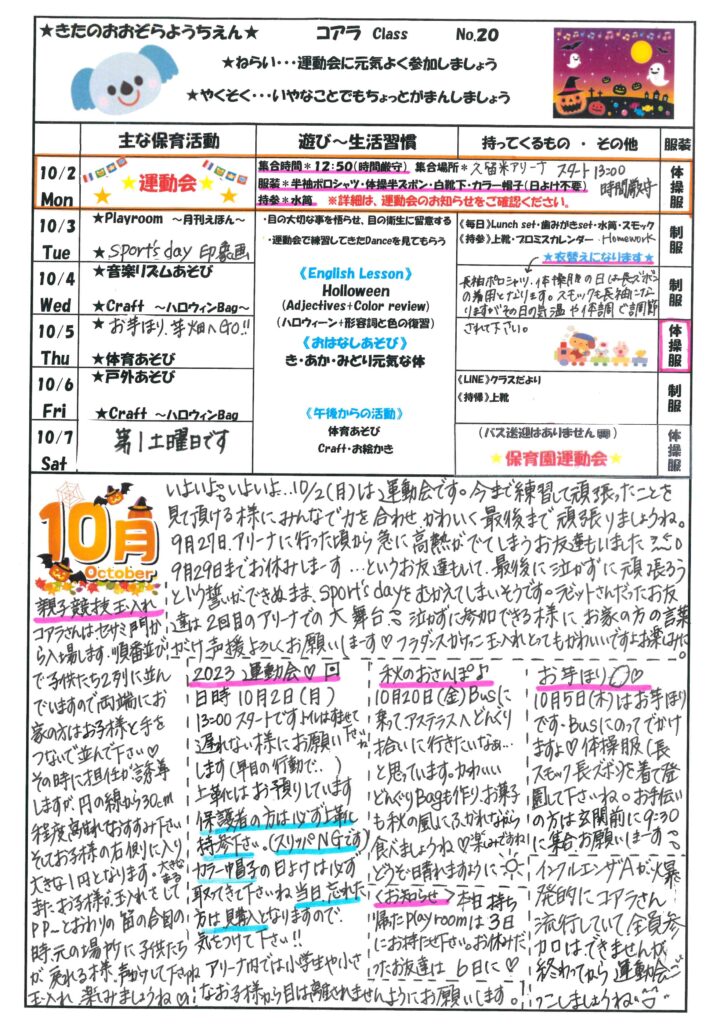 ★きたのおおぞらようちえん★ コアラ Class No.20
★ねらい・・・運動会に元気よく参加しましょう
★やくそく・・・いやなことでもちょっとがまんしましょう
主な保育活動 遊び～生活習慣 持ってくるもの ・ その他 服装
10/2 Mon
★運動会★
集合時間＊12:50(時間厳守) 集合場所＊久留米アリーナ スタート13:00
服装＊半袖ポロシャツ・体操半ズボン・白靴下・カラー帽子(日よけ不要) 時間厳守
持参＊水筒 ※詳細は、運動会のお知らせをご確認ください。
体操服
10/3 Tue
★Playroom ～月刊えほん～
★sport's day 印象画
・目の大切な事を悟らせ、目の衛生に留意する
・運動会で練習してきたDanceを見てもらう
《毎日》Lunch set・歯みがきset・水筒・スモック
《持参》上靴・プロミスカレンダー・Homework
★衣替えになります★
制服
10/4 Wed
★音楽リズムあそび
★Craft ～ハロウィンBag～
《English Lesson》
Holloween
(Adjectives+Color review)
(ハロウィーン+形容詞と色の復習)
長袖ポロシャツ、体操服の日は長ズボン
の着用となります。スモックも長袖にな
りますがその日の気温や体調で調節
されて下さい。
制服
10/5 Thu
★お芋ほり、芋畑へGO!!
★体育あそび
《おはなしあそび》
き・あか・みどり元気な体
体操服
10/6 Fri
★戸外あそび
★Craft ～ハロウィンBag
《午後からの活動》
体育あそび
Craft・お絵かき
《LINE》クラスだより
《持帰》上靴
制服
10/7 Sat
第1土曜日です
(バス送迎はありません)
★保育園運動会★
体操服
10月
October
いよいよ。いよいよ…10/2(月)は運動会です。今まで練習して頑張ったことを
見て頂ける様にみんなで力を合わせ、かわいく最後まで頑張りましょうね。
9月27日、アリーナに行った頃から急に高熱がでてしまうお友達もいました
9月29日までお休みしまーす…というお友達もいて、最後に泣かずに頑張ろう
という誓いができぬまま、sport's dayをむかえてしまいそうです。ラビットさんだったお友
達は2回目のアリーナでの大舞台 泣かずに参加できる様にお家の方の言葉
がけ、声援よろしくお願いします♡フラダンス 玉入れとってもかわいいですよお楽しみに。
親子競技玉入れ
コアラさんはセサミ門か
ら入場します。順番並び
で子供たち2列に並ん
でいますので両端にお
家の方はお子様と手を
つないで並んで下さい♡
その時に担任が誘導
しますが、円の線から30cm
程度離れておすすみ下さい
そしてお子様の右側に入り
大きな1円となります。大きなまる
またお子様が玉入れをして
PP～とおわりの笛の合図の
時、元の場所に子供たち
が戻れる様、声かけして下さいね
玉入れ、楽しみましょうね♡
2023 運動会♡
日時 10月2日(月)
13:00 スタートですトイレはすませて下さいね
遅れない様にお願い
します(早目の行動で..)
上靴はお預りしています
保護者の方は必ず上靴
持参下さい。(スリッパNGです)
カラー帽子の日よけは必ず
取ってきて下さいね当日忘れた
方は見購入となりますので
気をつけて下さい!!
アリーナ内では小学生や小さ
なお子様から目は離されませんようにお願いします。
秋のおさんぽ♪
10月20日(金)Busに
乗って、アステラスへどんぐり
拾いに行きたいなぁ…
と思っています。かわいい
どんぐりBagも作り、お菓子
も秋の風にふかれながら
食べましょうね♡楽しみですね
どうぞ晴れますように
<お知らせ>本日持ち
帰たplayroomは3日
にお持ち下さい。お休みだ
ったお友達は6日に♡
お芋ほり♡
10月5日(木)はお芋ほり
です・Busにのってでかけ
ますよ♡体操服(長
スモック長ズボン)を着て登
園して下さいね。お手伝い
の方は玄関前に9:30
に集合お願いしまーす
インフルエンザAが爆
発的にコアラさん
流行していて全員参
加はできませんが
終わってから運動会ご
っこしましょうね